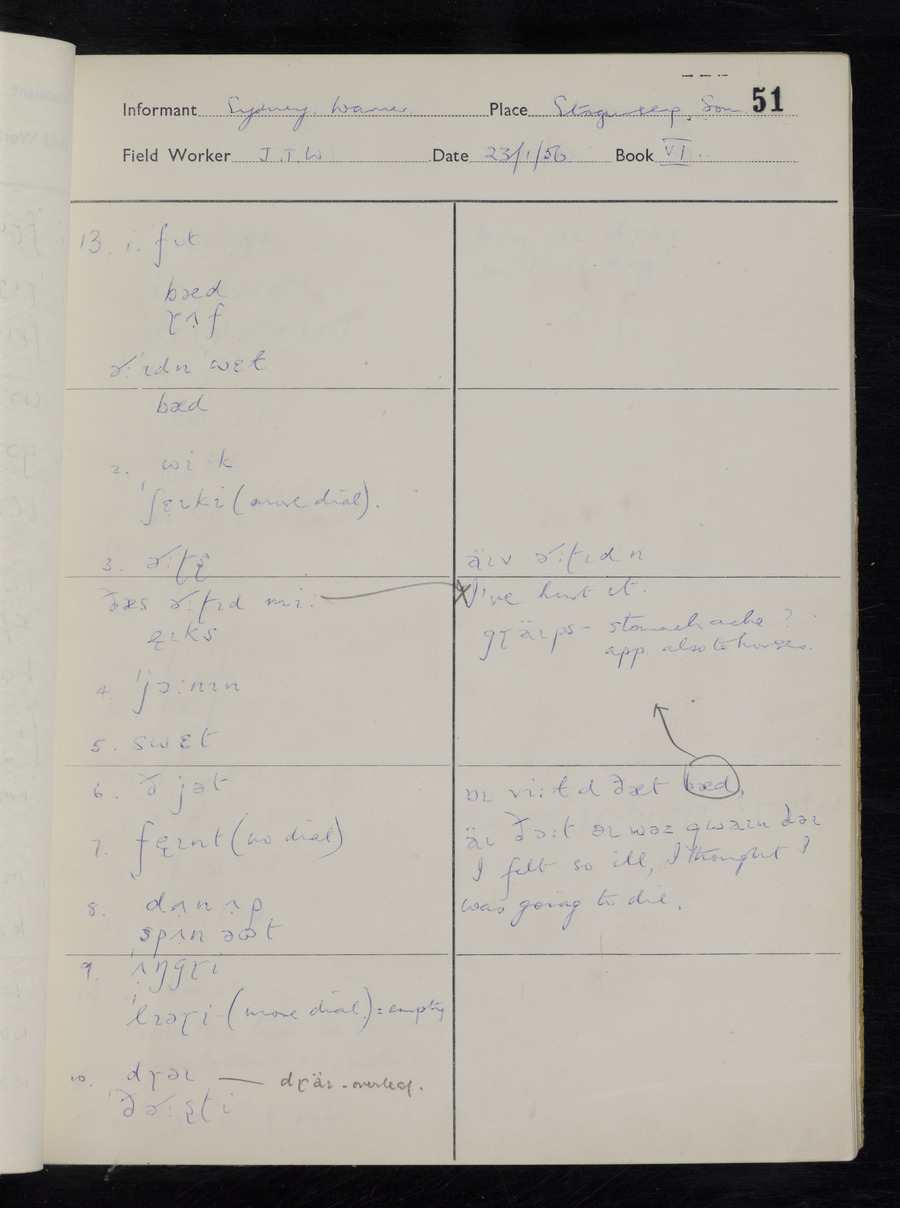 51
Informant Sydney Warner Place Stogursey, Som
Field Worker J.T.W Date 23/1/56 Book VI.
13. 1. fɪt
bæd
ɽʌ̣f
ɚ:ˈɪdn ˈwɛt
bæd
2. wi k
ˈʃɛ̨ɪki (more dial).
3. ɚ:ʈʂ
ðæs ɚ:ʈɪd mi:
ɛ̨ɪks
4. ˈjɔ:nɪn
5. swɛt
6. ð jət
7. fɛ̨ɪnt (no dial)
8. dʌ̣n ʌ̣p
spʌ̣n
9. ʌ̣ŋgɽi
ˈlɪəɽi (more dial.) = empty
10. dɽəɪ — dɽäɪ - overleaf.
ˈðɚ:ʂʈi
äɪv ɚ:ʈɪd n
I've hurt it.
gɽäɪps - stomach ache?
app. also to horses.
vi:ɫd ðæt bæd,
äɪ ðɔ:t əɪ wəz gwəɪn dəɪ
I felt so ill, I thought I
was going to die.